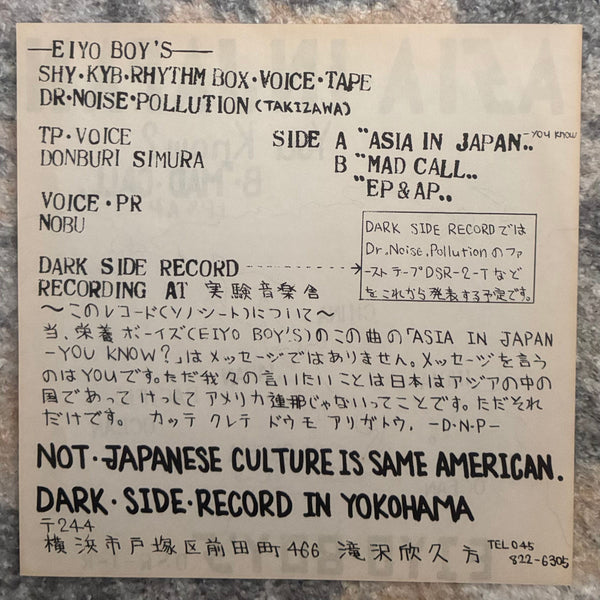 —EIYO BOY'S—
SHY・KYB・RHYTHM BOX・VOICE・TAPE
DR・NOISE・POLLUTION (TAKIZAWA)
TP・VOICE
DONBURI SIMURA
SIDE A "ASIA IN JAPAN.. -YOU KNOW
B "MAD CALL..
"EP & AP..
VOICE・PR
NOBU
DARK SIDE RECORD
RECORDING AT 実験音楽舎
DARK SIDE RECORDでは
Dr.Noise.Pollutionのファ
ーストテープDSR-2-Tなど
をこれから発表する予定です。
〜このレコード(ソノシート)について〜
当、栄養ボーイズ(EIYO BOY'S)のこの曲の「ASIA IN JAPAN
-YOU KNOW?」はメッセージではありません。メッセージを言う
のはYOUです。ただ我々の言いたいことは日本はアジアの中の
国であって けっして アメリカ連邦じゃないってことです。ただそれ
だけです。 カッテ クレテ ドウモ アリガトウ. -D・N・P-
NOT・JAPANESE CULTURE IS SAME AMERICAN.
DARK・SIDE・RECORD IN YOKOHAMA
〒244
横浜市戸塚区前田町466 滝沢欣久方 TEL045
822-6305